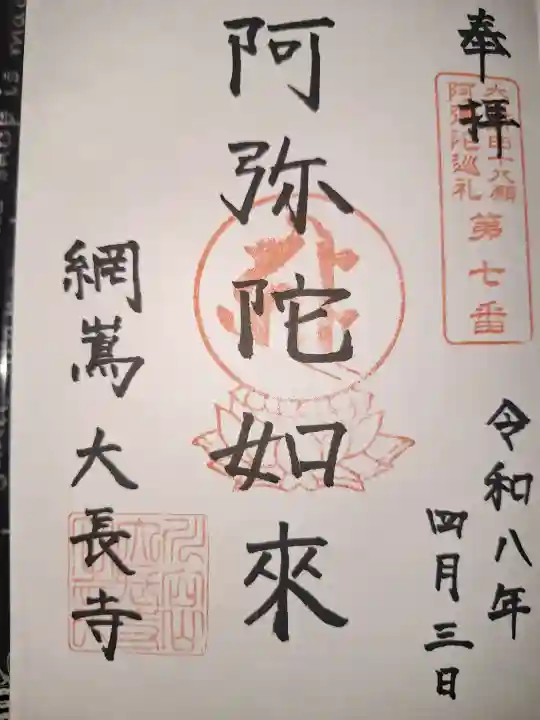 奉拝
大阪四十八願
阿弥陀巡礼
第七番
令和八年
四月三日
阿弥陀如來
網嶌 大長寺